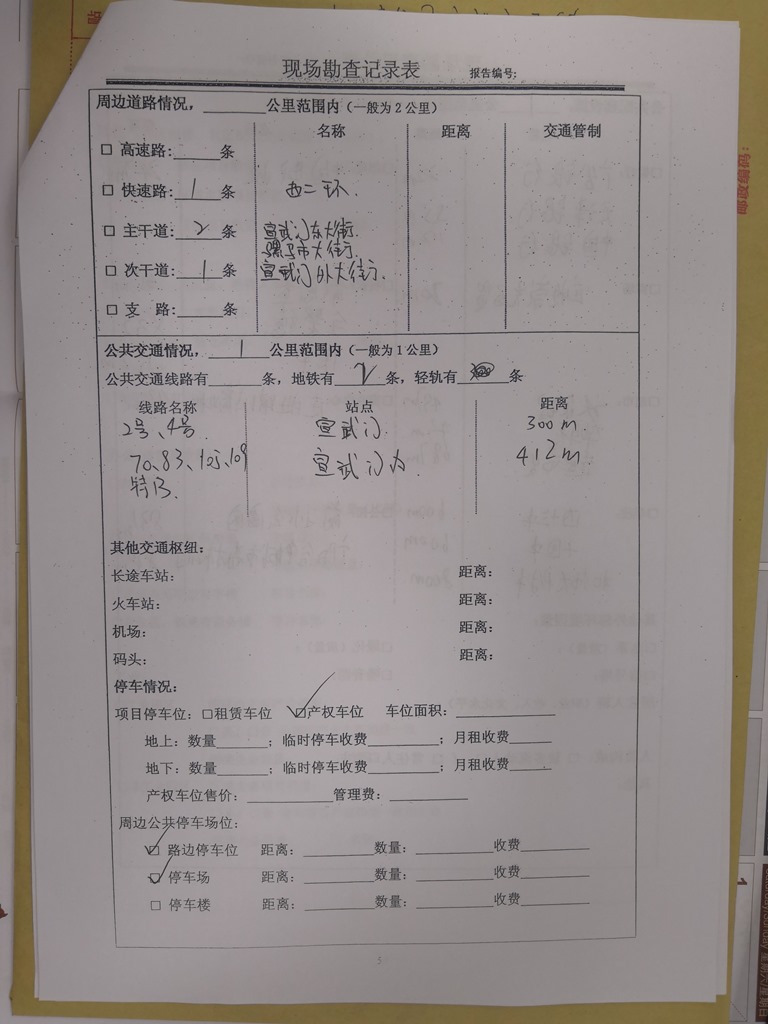 现场勘查记录表 报告编号:
周边道路情况，________公里范围内（一般为2公里）
名称 距离 交通管制
□ 高速路:_____条
□ 快速路: 1 条 西二环.
□ 主干道: 2 条 宣武门东大街.
骡马市大街.
□ 次干道: 1 条 宣武门外大街.
□ 支 路:_____条
公共交通情况， 1 公里范围内（一般为1公里）
公共交通线路有______条，地铁有 2 条，轻轨有______条
线路名称 站点 距离
2号、4号. 宣武门. 300m.
70、83、105、109 宣武门 412m.
特13.
其他交通枢纽：
长途车站: 距离:
火车站: 距离:
机场: 距离:
码头: 距离:
停车情况:
项目停车位: □租赁车位 ☑产权车位 车位面积:____________
地上: 数量______; 临时停车收费________; 月租收费_____
地下: 数量______; 临时停车收费________; 月租收费_____
产权车位售价: __________管理费: _________
周边公共停车场位:
☑ 路边停车位 距离: ________数量: _________收费________
☑ 停车场 距离: ________数量: _________收费________
□ 停车楼 距离: ________数量: _________收费________
5